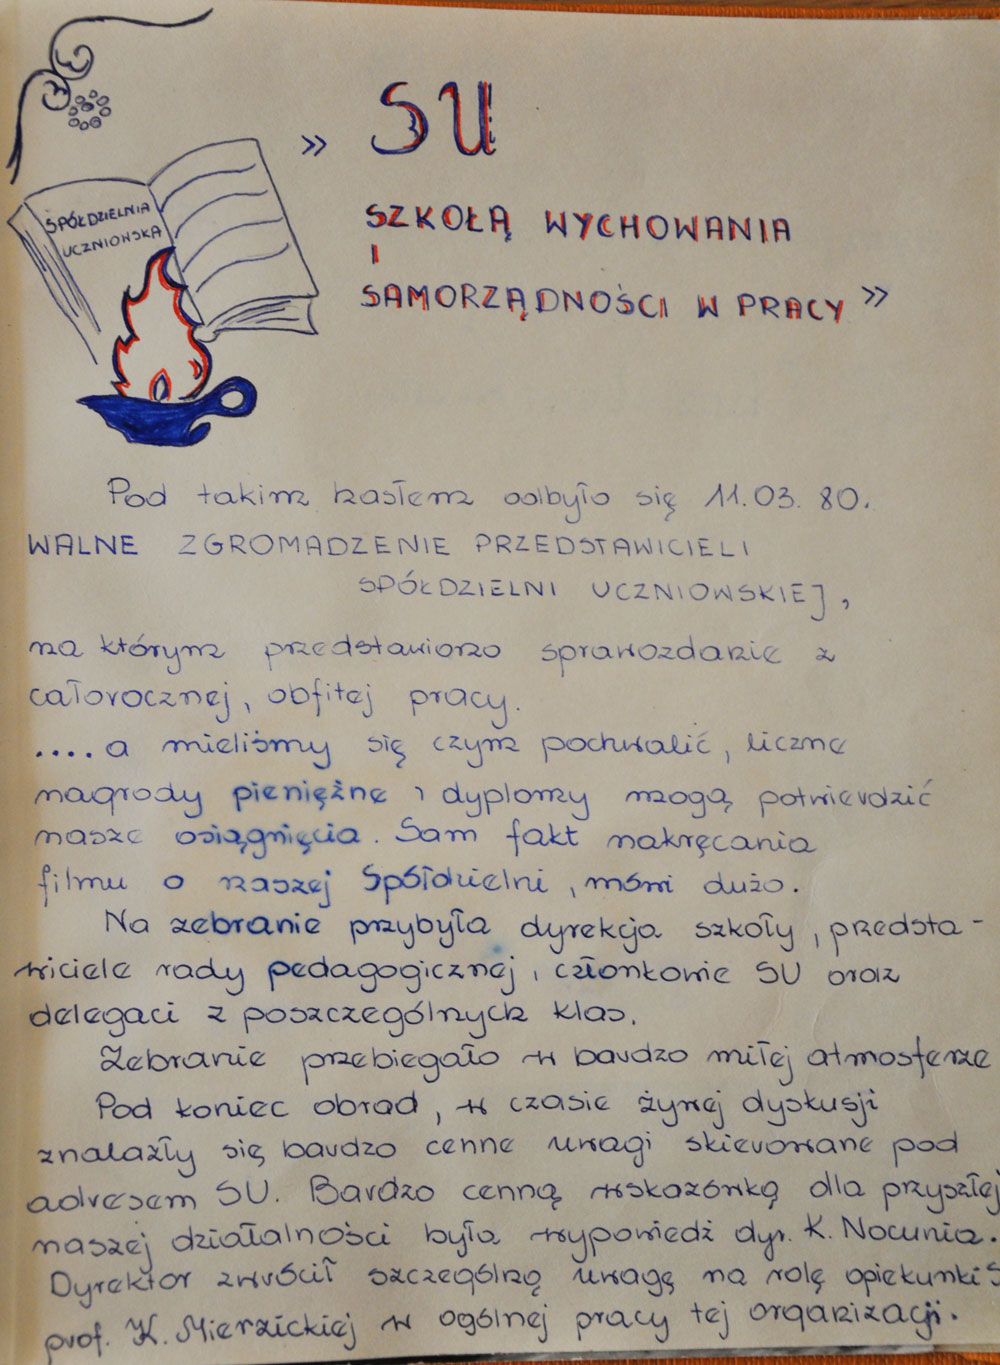 SPÓŁDZIELNIA
UCZNIOWSKA
» SU
SZKOŁĄ WYCHOWANIA
I
SAMORZĄDNOŚCI W PRACY »
Pod takim hasłem odbyło się 11.03.80.
WALNE ZGROMADZENIE PRZEDSTAWICIELI
SPÓŁDZIELNI UCZNIOWSKIEJ,
na którym przedstawiono sprawozdanie z
całorocznej, obfitej pracy.
....a mieliśmy się czym pochwalić, liczne
nagrody pieniężne i dyplomy mogą potwierdzić
nasze osiągnięcia. Sam fakt nakręcania
filmu o naszej Spółdzielni, mówi dużo.
Na zebranie przybyła dyrekcja szkoły, przedsta-
wiciele rady pedagogicznej, członkowie SU oraz
delegaci z poszczególnych klas.
Zebranie przebiegało w bardzo miłej atmosferze
Pod koniec obrad, w czasie żywej dyskusji
znalazły się bardzo cenne uwagi skierowane pod
adresem SU. Bardzo cenną wskazówką dla przyszłej
naszej działalności była wypowiedź dyr. K. Nocunia.
Dyrektor zwrócił szczególną uwagę na rolę opiekunki S
prof. K. Mierzickiej w ogólnej pracy tej organizacji.